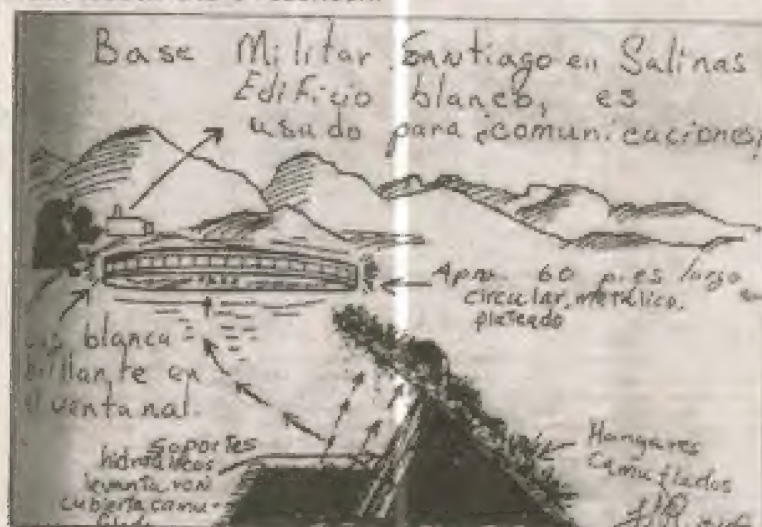 Base Militar Santiago en Salinas
Edificio blanco, es
usado para comunicaciones,
Apro. 60 pies largo
circular, metálico,
plateado
blanca
brillante en
el ventanal.
Soportes
hidraulicos
levantaron
cubierta camu-
Hangares
Camuflados